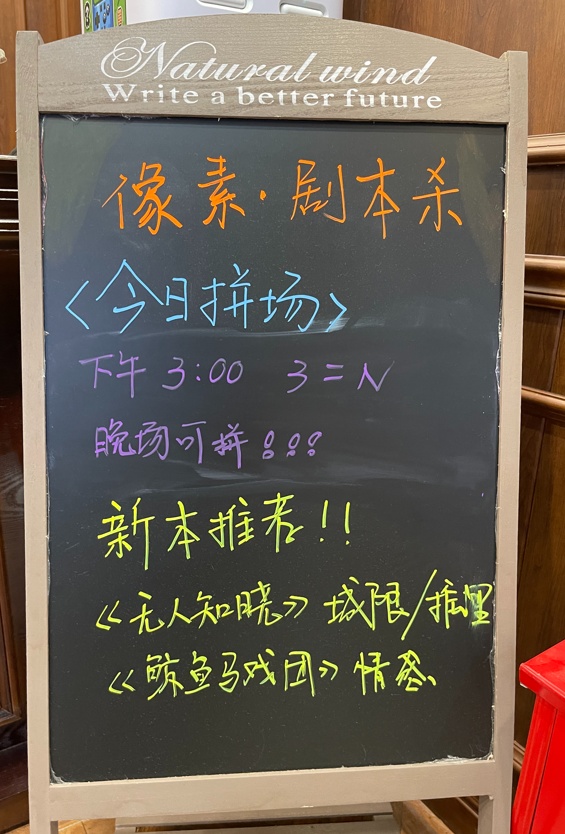 Natural wind
Write a better future
像素·剧本杀
<今日拼场>
下午 3:00 3=N
晚场可拼!!!
新本推荐!!
《无人知晓》城限/推理
《鲸鱼马戏团》情感